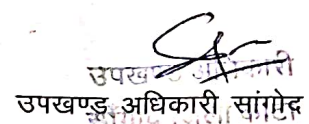 उपखण्ड अधिकारी
उपखण्ड अधिकारी सांगोद